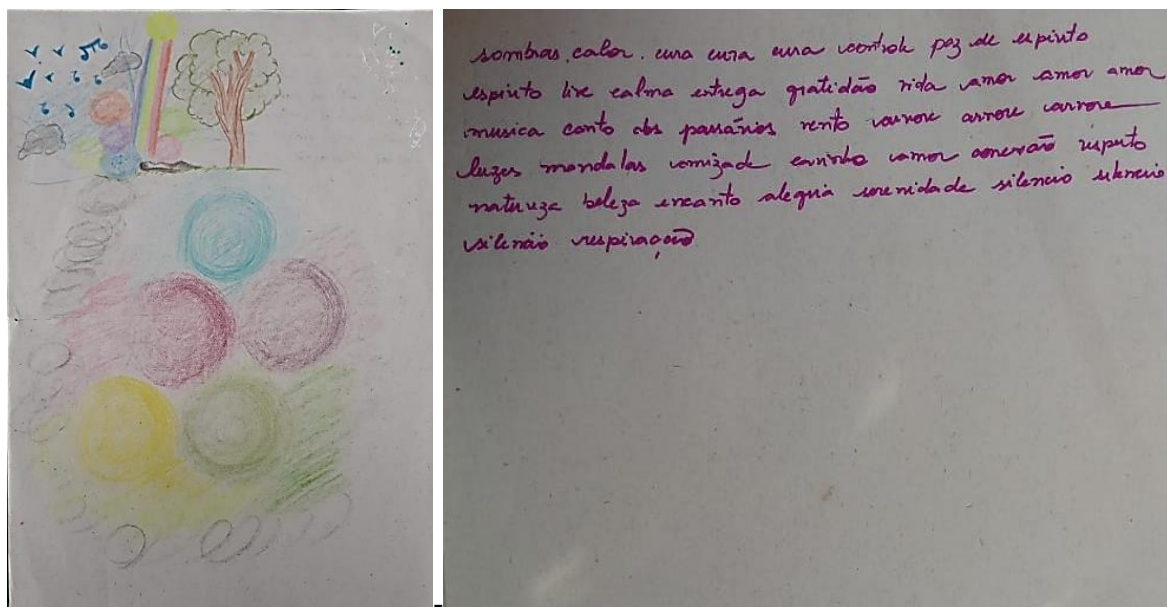 sombras. calor. cura cura cura control paz de espirito
espirito live calma entrega gratidão vida amor amor amor
musica canto dos passários vento arvore arvore arvore
luzes mandalas amizade carinho amor conexão respeito
natureza beleza encanto alegria serenidade silencio silencio
silencio respiração